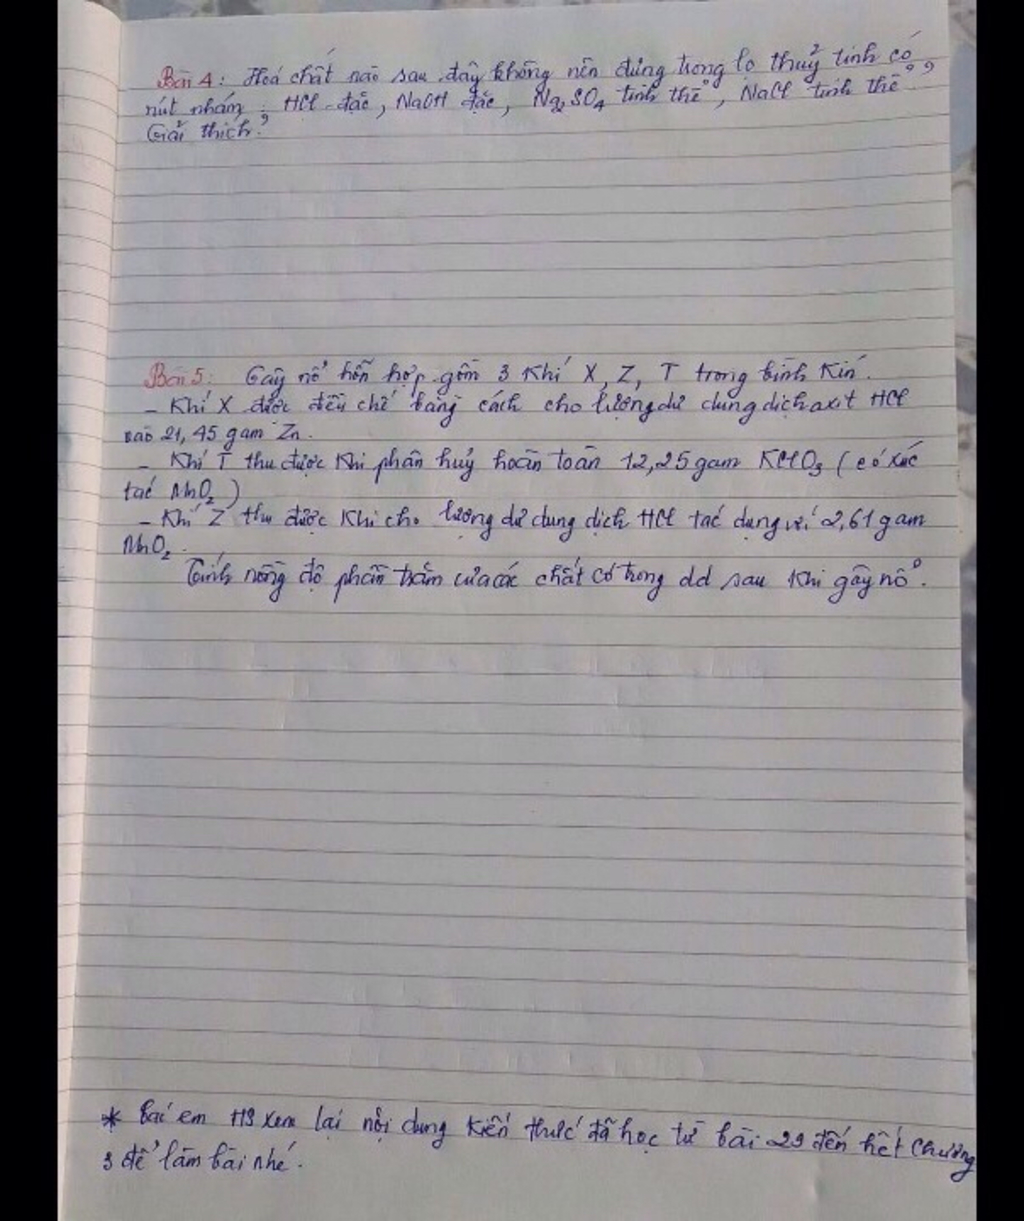 Bài 4: Hoá chất nào sau đây không nên đựng trong lọ thuỷ tinh có
nút nhám: HCl đặc, NaOH đặc, Na2SO4 tinh thể, NaCl tinh thể?
Giải thích?
Bài 5: Gây nổ hỗn hợp gồm 3 khí X, Z, T trong bình kín.
- Khí X được điều chế bằng cách cho lượng dư dung dịch axit HCl
vào 21,45 gam Zn.
- Khí T thu được khi phân huỷ hoàn toàn 12,25 gam KClO3 (có xúc
tác MnO2)
- Khí Z thu được khi cho lượng dư dung dịch HCl tác dụng với 2,61 gam
MnO2.
Tính nồng độ phần trăm của các chất có trong dd sau khi gây nổ.
* Các em HS xem lại nội dung kiến thức đã học từ bài 29 đến hết chương
3 để làm bài nhé.